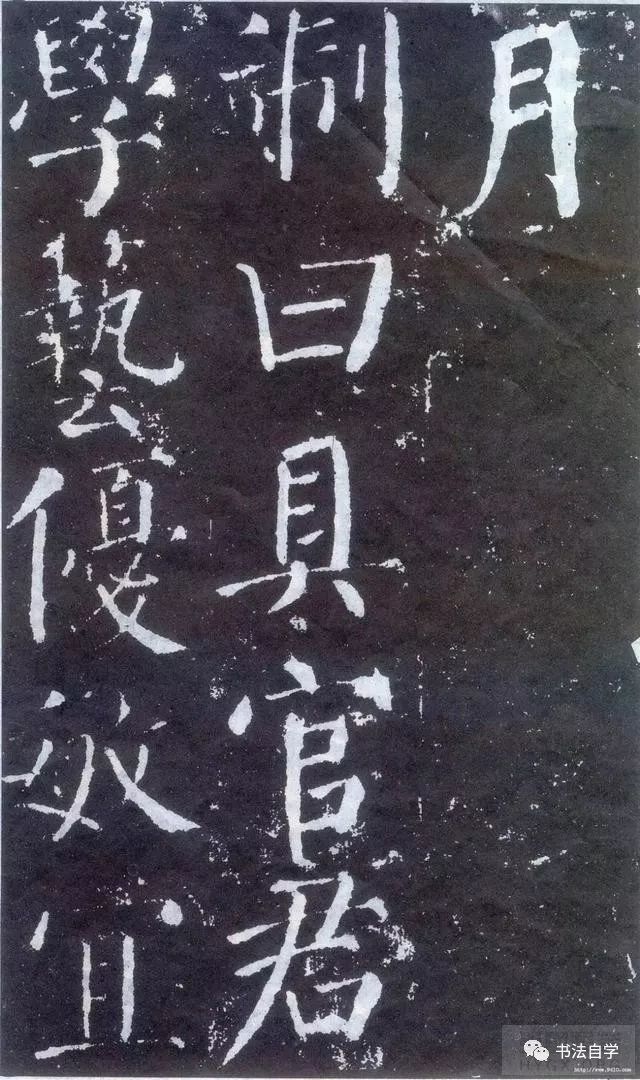 月
制曰具官君
學藝優敏宜
书法自学